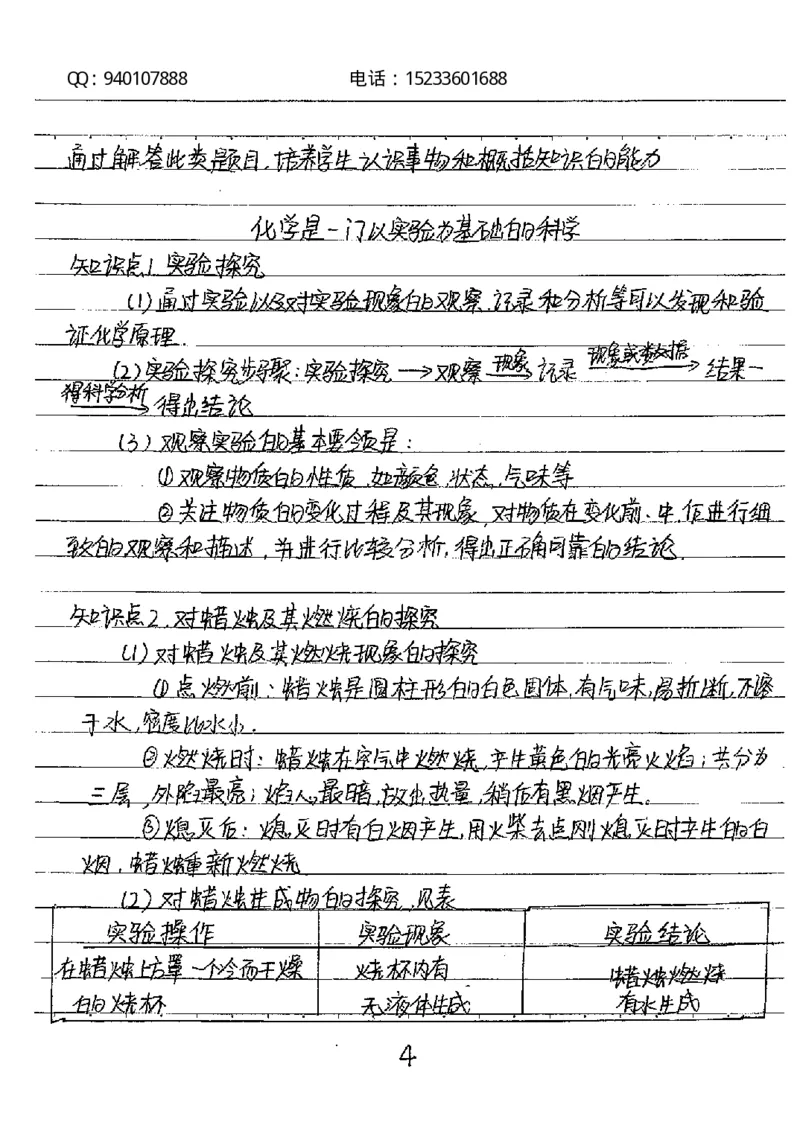 QQ：940107888 电话：15233601688
通过解答此类题目，培养学生认识事物和概括知识的能力
化学是一门以实验为基础的科学
知识点1 实验探究
(1)通过实验以及对实验现象的观察、记录和分析等可以发现和验
证化学原理.
(2)实验探究步骤：实验探究 → 观察 现象→ 记录 现象或数据→ 结果一
得科学分析→ 得出结论
(3)观察实验的基本要领是：
①观察物质的性质，如颜色，状态，气味等
②关注物质的变化过程及其现象，对物质在变化前、中、后进行细
致的观察和描述，并进行比较分析，得出正确可靠的结论.
知识点2.对蜡烛及其燃烧的探究
(1)对蜡烛及其燃烧现象的探究
①点燃前：蜡烛是圆柱形的白色固体，有气味，易折断，不溶
于水，密度比水小.
②燃烧时：蜡烛在空气中燃烧，产生黄色的光亮火焰；共分为
三层，外焰最亮；焰心最暗，放出热量，稍后有黑烟产生。
③熄灭后：熄灭时有白烟产生，用火柴去点刚熄灭时产生的白
烟，蜡烛重新燃烧
(2)对蜡烛生成物的探究，见表
实验操作 实验现象 实验结论
在蜡烛上方罩一个冷而干燥 烧杯内有 蜡烛燃烧
的烧杯 无液体生成 有水生成
4